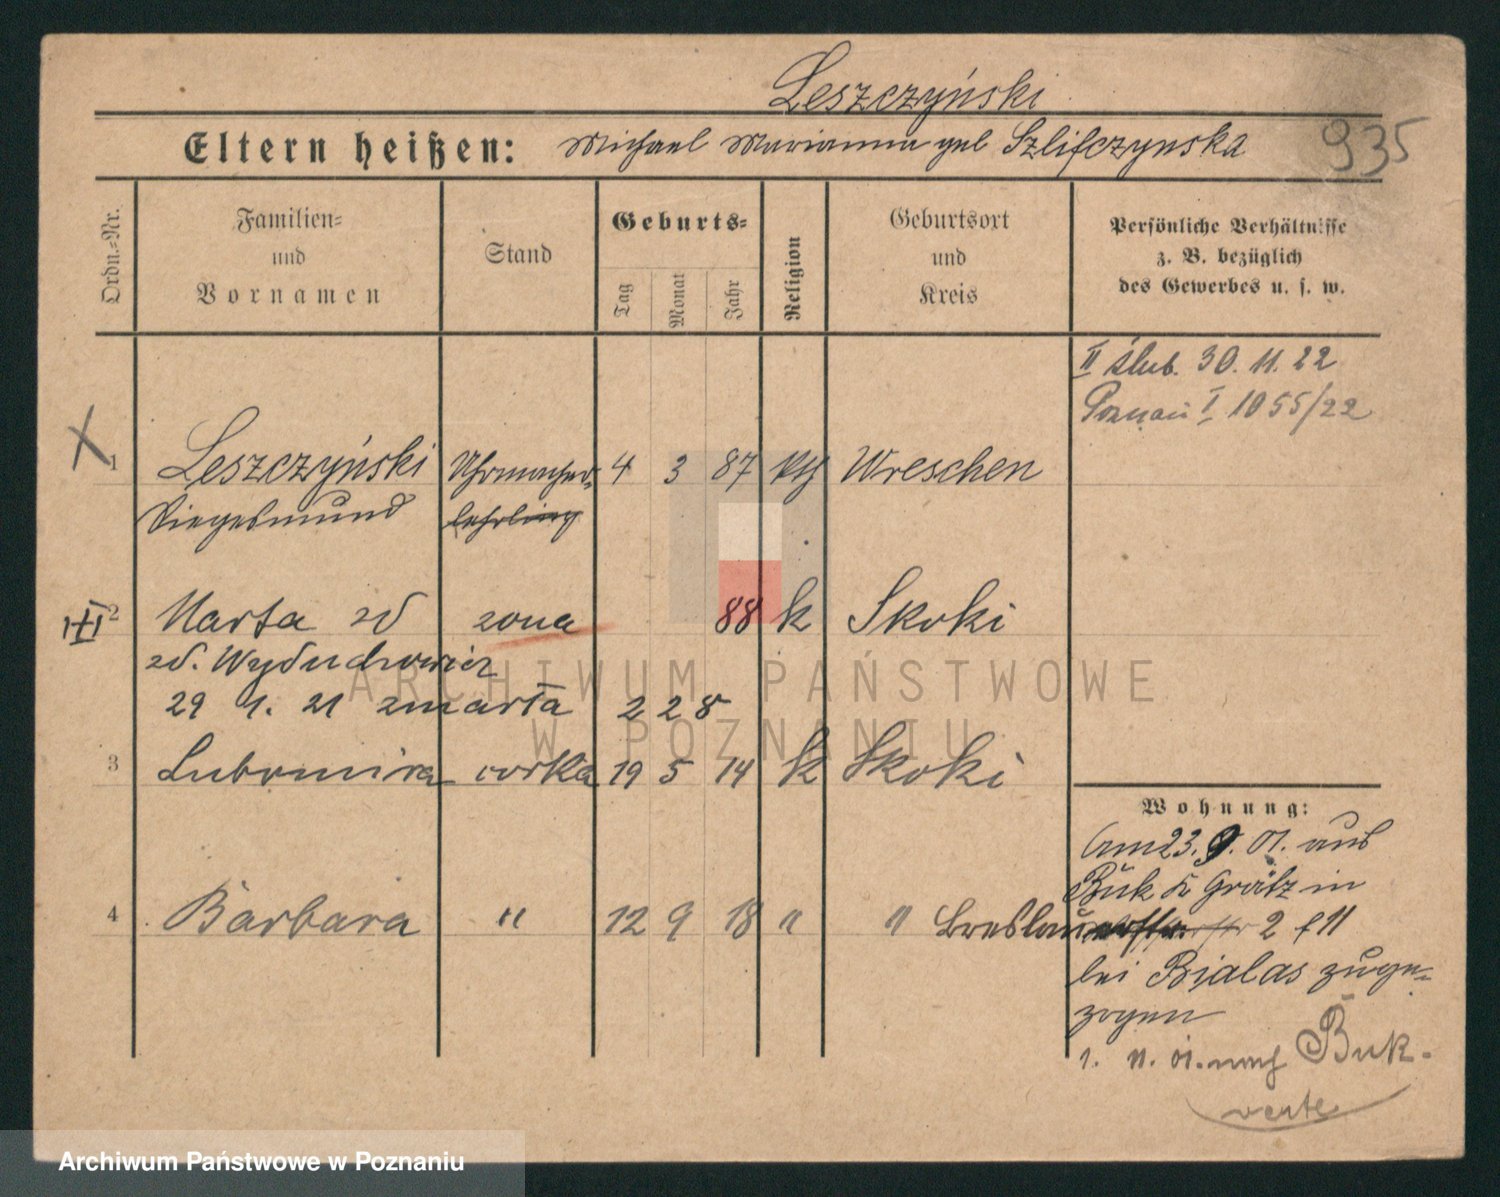 Leszczyński
Eltern heißen: Michael Marianna geb Szlifczynska
935
Ordn.=Nr.
Familien=
und
Vornamen
Stand
Geburts=
Tag
Monat
Jahr
Religion
Geburtsort
und
Kreis
Persönliche Verhältnisse
z. B. bezüglich
des Gewerbes u. s. w.
II ślub. 30. 11. 22
Poznań I 1055/22
1 Leszczyński Uhrmacher= 4 3 87 kth Wreschen
Siegesmund lehrling
2 Marta zd zona 88 k Skoki
zd. Wyduchowicz
29 1. 21 zmarła 2 2 8
3 Lubomira corka 19 5 14 k Skoki
Wohnung:
am 23. 9. 01. aus
Buk Kr Grätz in
4 Barbara " 12 9 18 " " Breslau 2 f 11
bei Bialas zuge=
zogen
1. 11. 01. nach Buk.
verte
ARCHIWUM PAŃSTWOWE
W POZNANIU
Archiwum Państwowe w Poznaniu